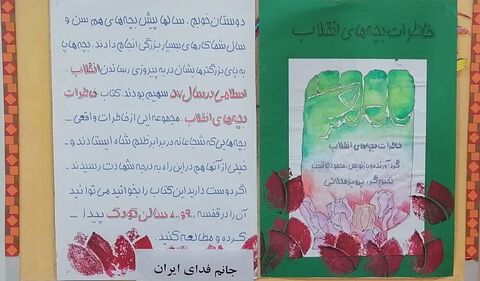 دوستان خوبم، سالها پیش بچه های هم سن و
سال شما کارهای بسیار بزرگی انجام دادند. بچه ها پا
به پای بزرگترهایشان در به پیروزی رساندن انقلاب
اسلامی در سال ۵۷ سهیم بودند کتاب خاطرات
بچه های انقلاب مجموعه ایی از خاطرات واقعی
بچه هایی که شجاعانه در برابر ظلم شاه ایستادند و
خیلی از آنها هم در این راه به درجه شهادت رسیدند.
اگر دوست دارید این کتاب را بخوانید می توانید
آن را در قفسه ۸۰۹ سالن کودک پیدا
کرده و مطالعه کنید.
جانم فدای ایران
خاطرات بچه های انقلاب
خاطرات بچه های انقلاب
تصویرگر: پرویز محلاتی